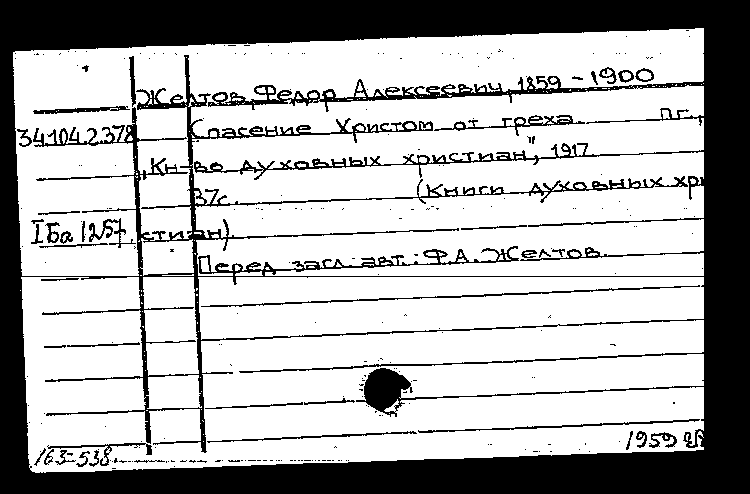 Желтов, Федор Алексеевич, 1859-1900
34.104.2.378 Спасение Христом от греха. П.г.,
„Кн-во духовных христиан", 1917.
37с. (Книги духовных хри
IБа 1257. стиан).
Перед загл. авт.: Ф.А. Желтов.
163-538.
1959